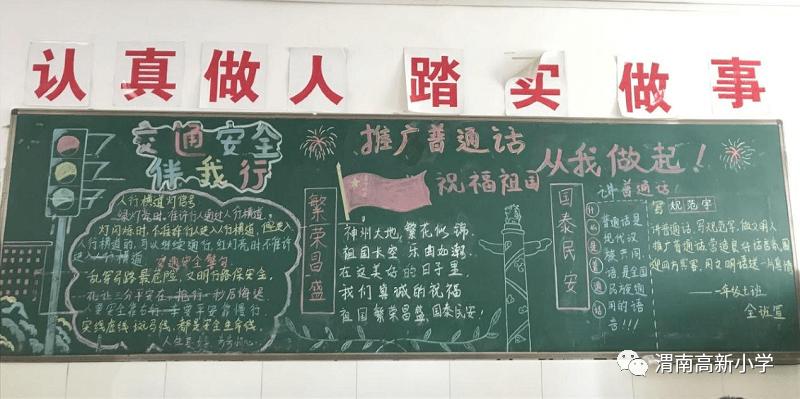 认真做人 踏实做事
交通安全
伴我行
人行横道灯信号
绿灯亮时,准许行人通过人行横道,
灯闪烁时,不准行人进入人行横道,但已进入
人行横道的,可以继续通行,红灯亮时不准许
进入人行横道
交通安全警句
乱穿马路最危险,文明行路保安全。
实线虚线斑马线,都是安全生命线。
推广普通话
祝福祖国
繁荣昌盛
神州大地,繁花似锦,
祖国长空 乐曲如潮
在这美好的日子里
我们真诚的祝福
祖国繁荣昌盛,国泰民安!
国泰民安
从我做起!
讲普通话!
什么是普通话
普通话是
现代汉
族共同
语,是全国
各民族通
用的语
言!!!
写规范字
讲普通话,写规范字,做文明人
一年级七班
全班宣
渭南高新小学